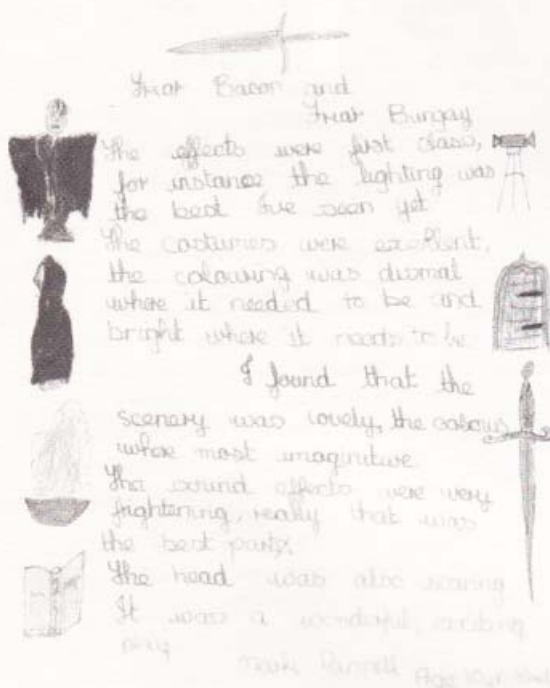 Friar Bacon and
Friar Bungay
The effects were first class,
for instance the lighting was
the best I've seen yet
The costumes were excellent,
the colouring was dismal
where it needed to be and
bright where it needs to be
I found that the
scenery was lovely, the colours
where most imaginative
The sound effects were very
frightening, really that was
the best part,
The head was also scaring
It was a wonderful, exciting
play
Mark Age